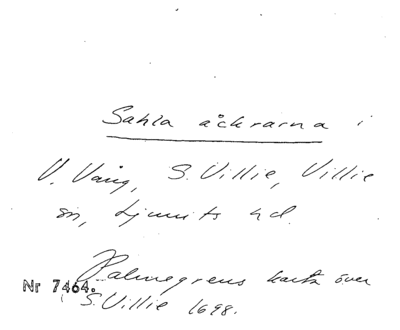 Sahla åckrarna i
V. Vång, S. Villie, Villie
sn, Ljunits hd.
Palmegrens karta över
Nr 7464.
S. Villie 1698.